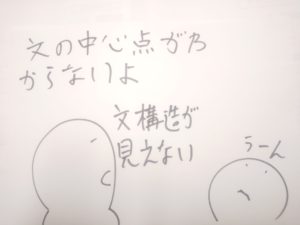 文の中心点がわ
からないよ
文構造が
見えない
うーん